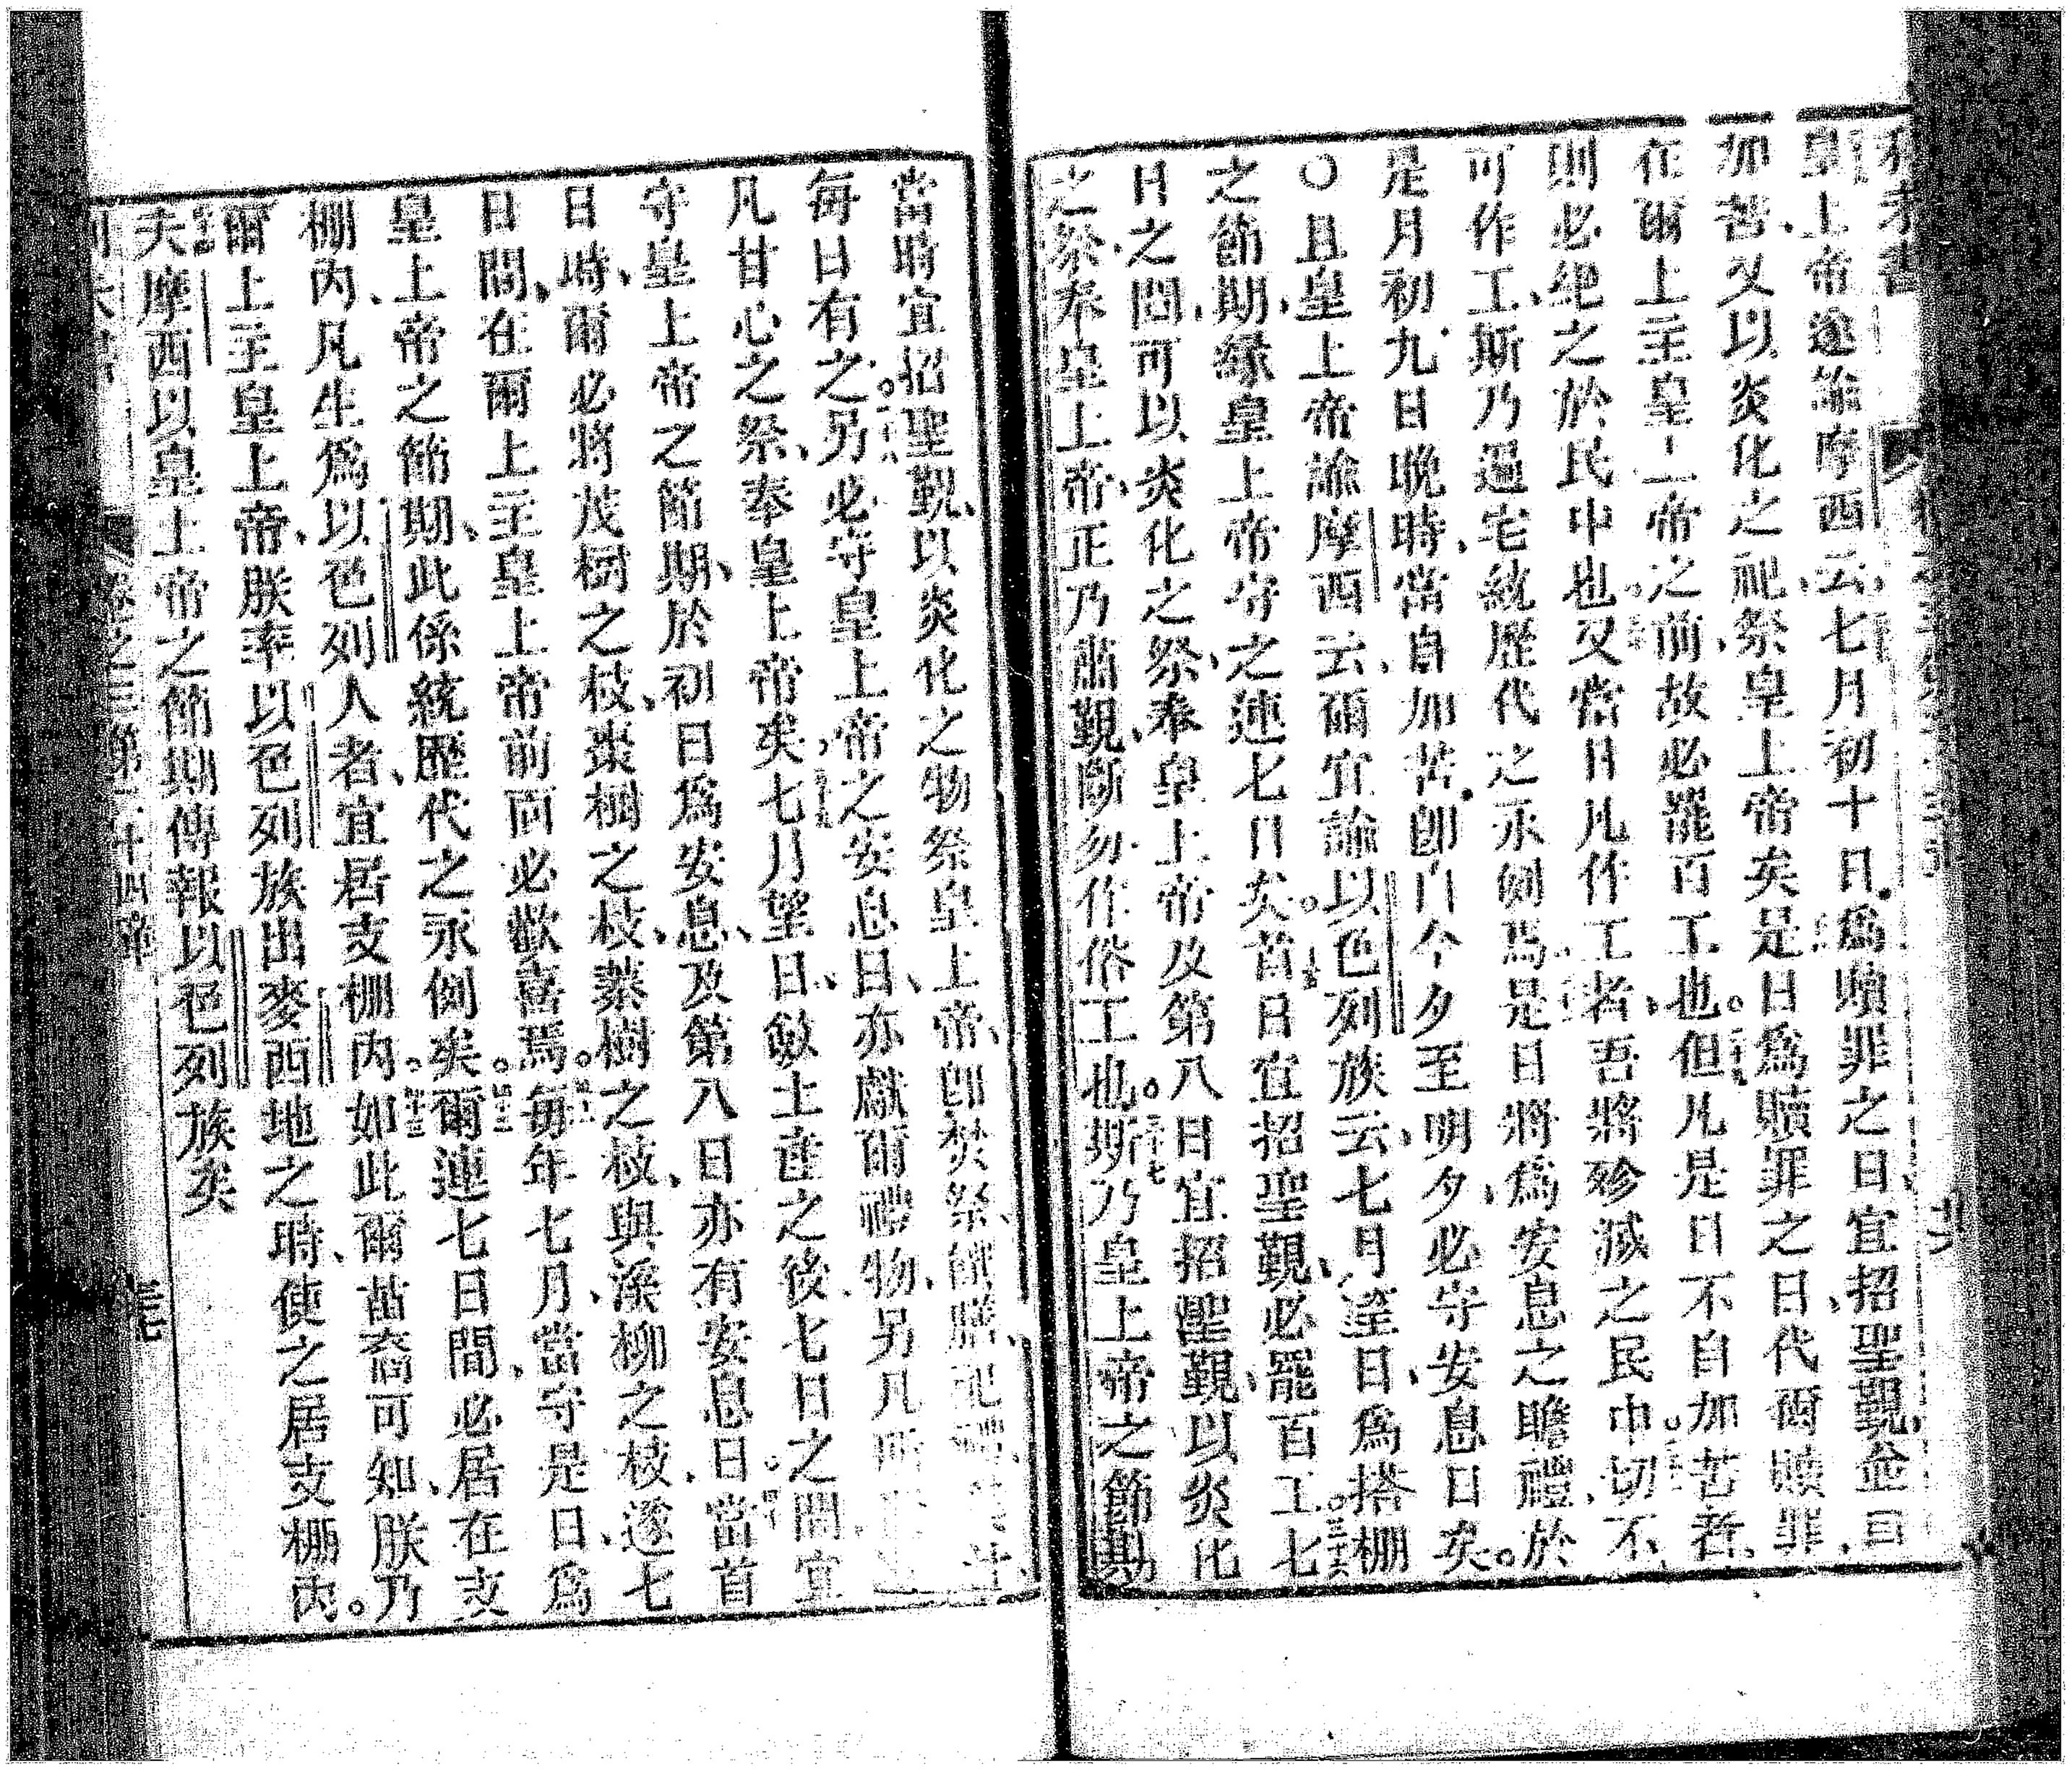 皇上帝遂諭摩西云、七月初十日、爲贖罪之日、宜招聖覲、並自
加苦、又以炎化之祀、祭皇上帝矣是日爲贖罪之日、代爾贖罪、
在爾上主皇上帝之前故必罷百工也。但凡是日不自加苦者、
則必絕之於民中也又當日凡作工者吾將殄滅之民中切不
可作工、斯乃遍宅統歷代之永例焉是日將爲安息之瞻禮、於
是月初九日晚時、當自加苦、卽自今夕至明夕、必守安息日矣。
○且皇上帝諭摩西云、爾宜諭以色列族云、七月望日、爲搭棚
之節期、緣皇上帝守之連七日矣。首日宜招聖覲、必罷百工。三十六七
日之間、可以炎化之祭、奉皇上帝及第八日宜招聖覲、以炎化
之祭、奉皇上帝、正乃肅覲、斷勿作俗工也。三十七斯乃皇上帝之節期
當時宜招聖覲、以炎化之物祭皇上帝、卽焚祭、饌膳、祀
每日有之。另必守皇上帝之安息日、亦獻爾禮物、另凡所
凡甘心之祭、奉皇上帝矣、七月望日、斂土產之後、七日之間宜
守皇上帝之節期、於初日爲安息、及第八日亦有安息日。當首
日時、爾必將茂樹之枝、棗樹之枝、蓁樹之枝、與溪柳之枝、遂七
日間、在爾上主皇上帝前而必歡喜焉。每年七月、當守是日、爲
皇上帝之節期、此係統歷代之永例矣。爾連七日間、必居在支
棚內、凡生爲以色列人者、宜居支棚內。如此爾苗裔可知、朕乃
爾上主皇上帝、朕率以色列族出麥西地之時、使之居支棚內。
夫摩西以皇上帝之節期傳報以色列族矣
卷之三第二十四章